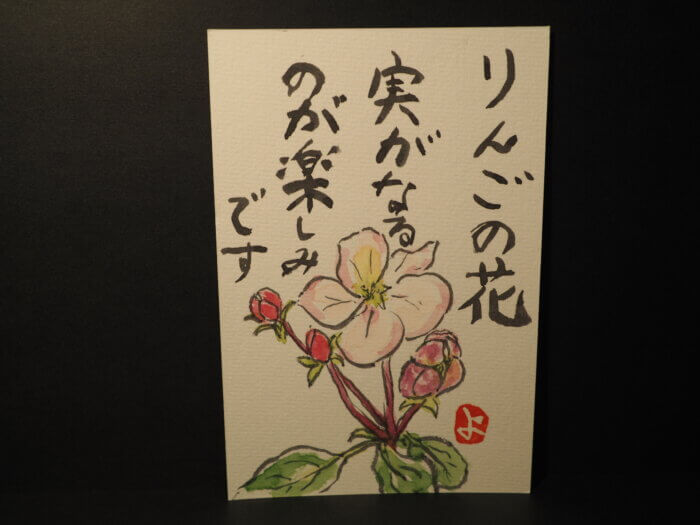 りんごの花
実がなる
のが楽しみ
です
よ